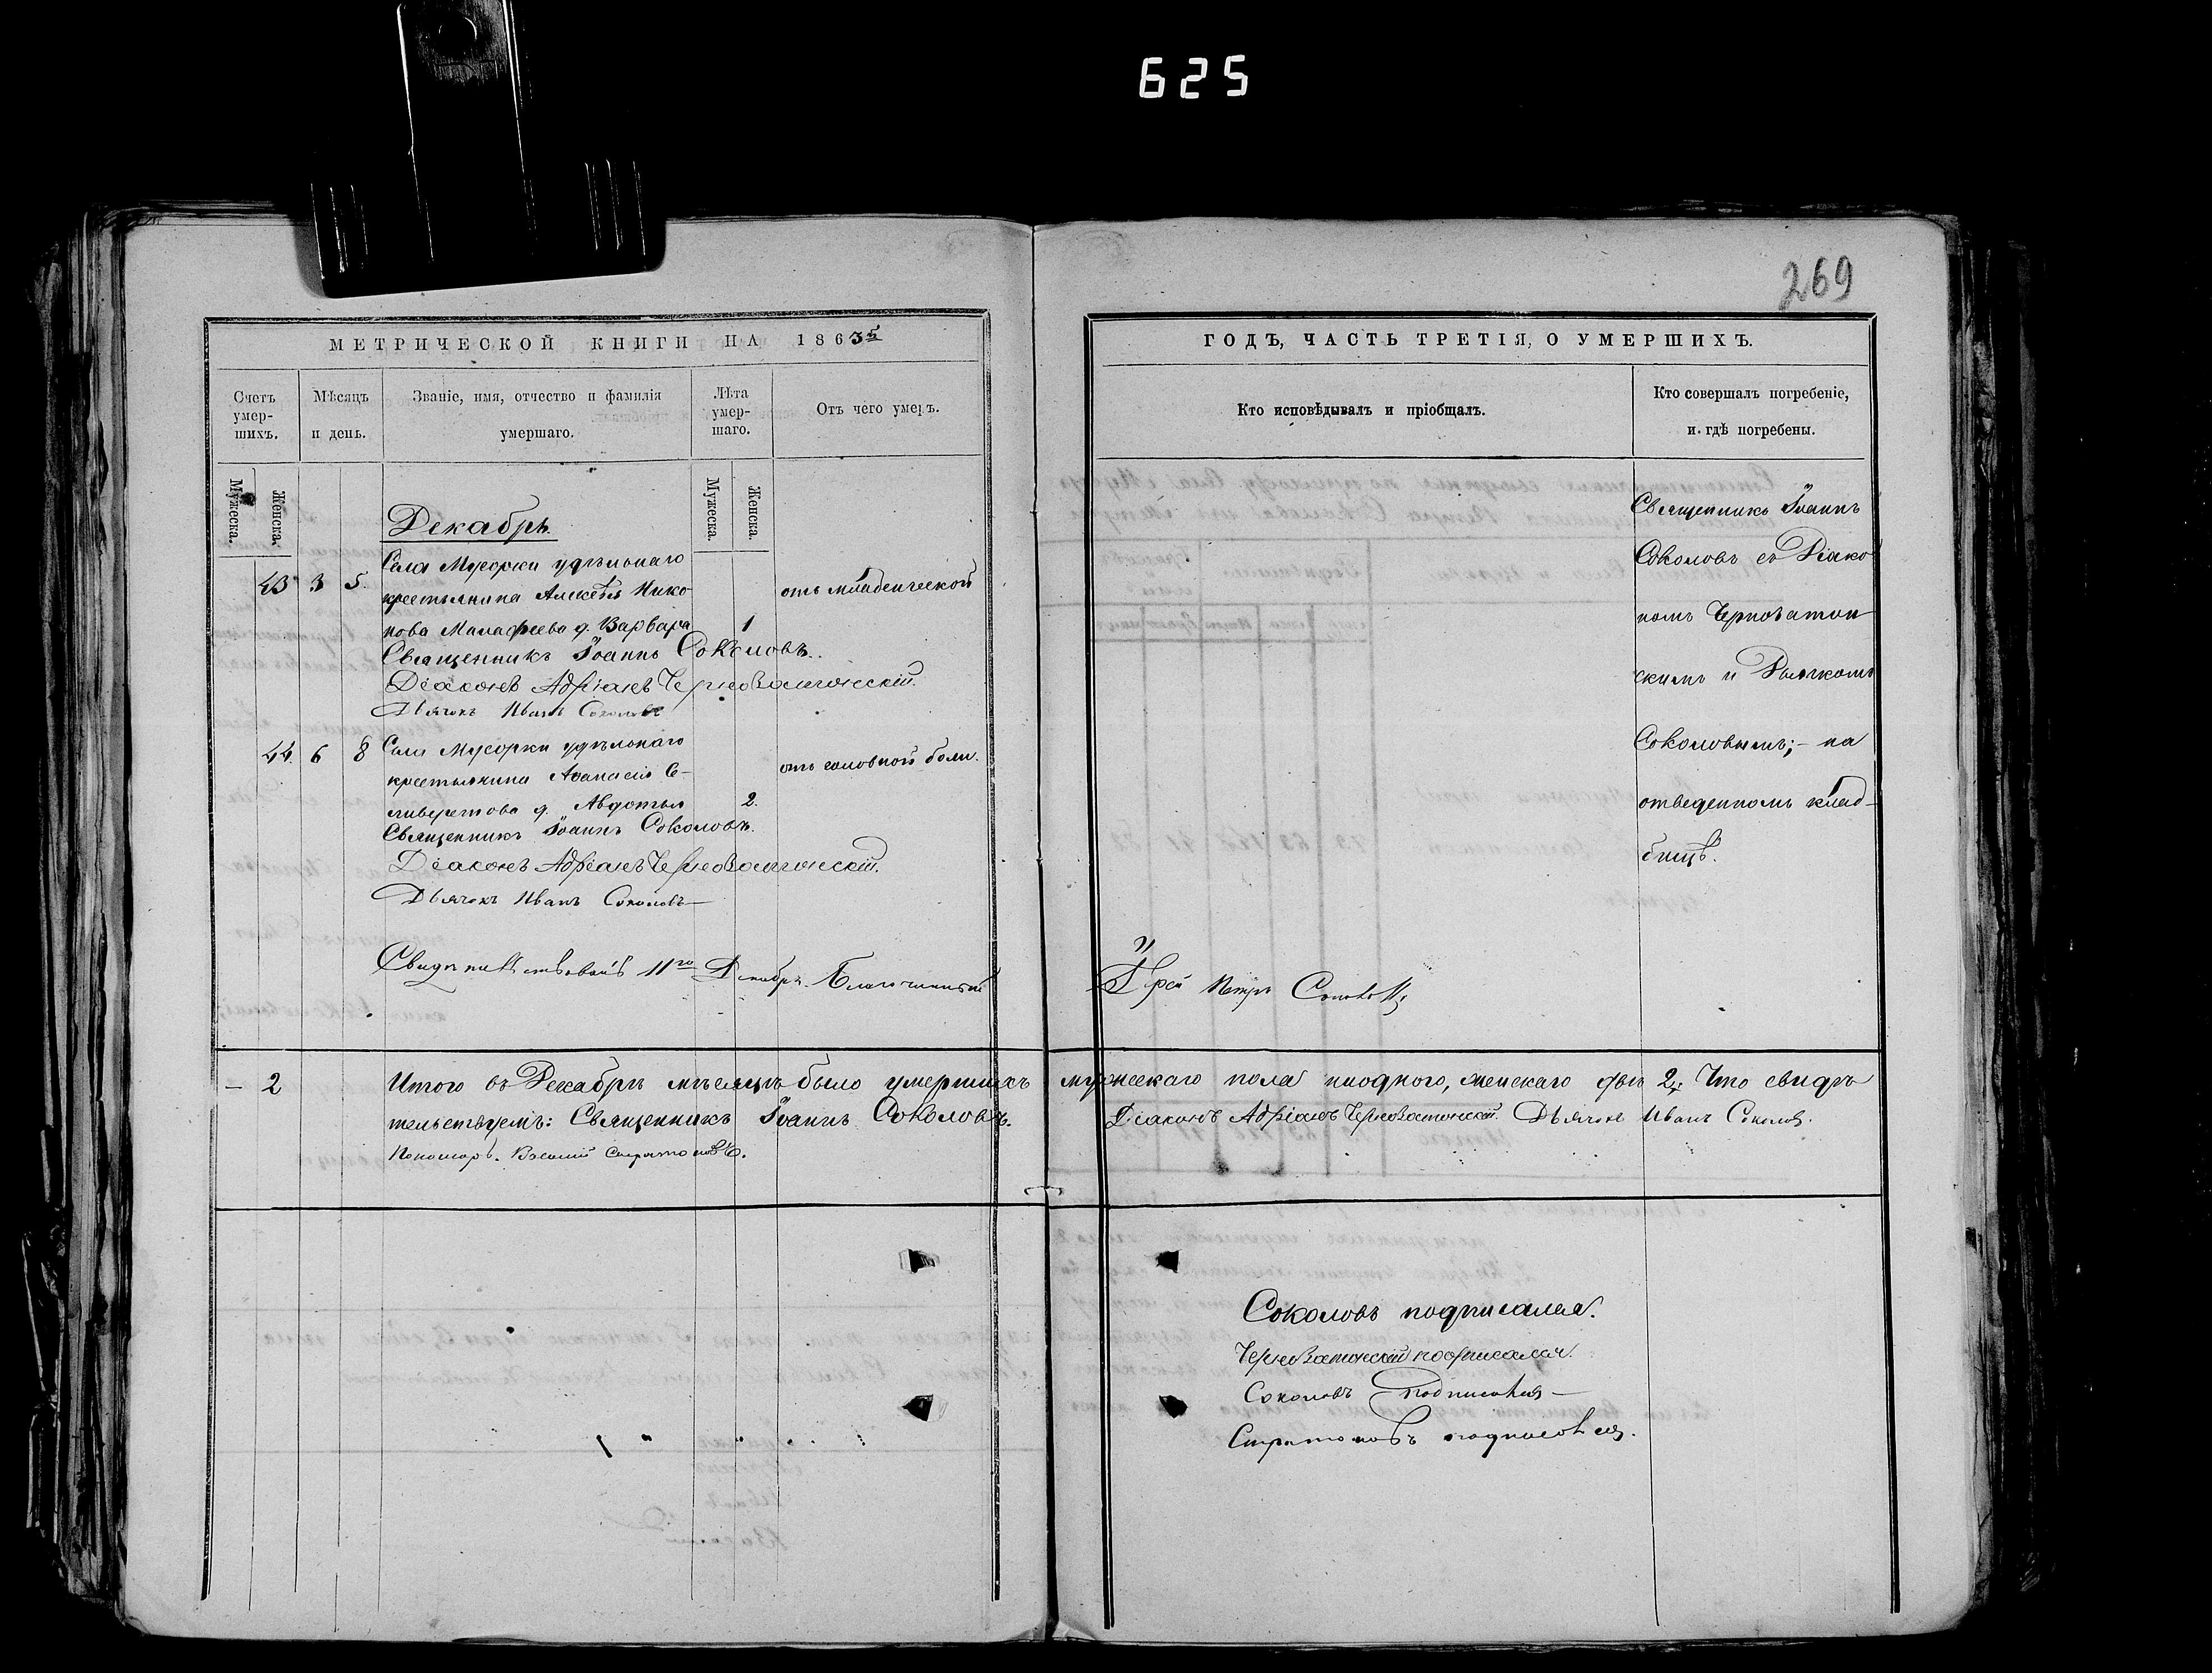 625
269
МЕТРИЧЕСКОЙ КНИГИ НА 1863
Счетъ умер-шихъ.
Мѣсяцъ и день.
Званіе, имя, отчество и фамилія умершаго.
Лѣта умер-шаго.
Отъ чего умеръ.
Мужеска.
Женска.
Мужеска.
Женска.
Декабрь.
Села Мусорки удѣльнаго
43 3 5 крестьянина Алексѣя Нико- отъ младенческой
нова Малафеева д. Варвара 1
Священникъ Іоаннъ Соколовъ.
Діаконъ Адріанъ Черноватонскій.
Дьячокъ Иванъ Соколовъ
44. 6 8 Села Мусорки удѣльнаго
крестьянина Аѳанасія Се- отъ головной боли.
ливерстова д. Авдотья 2.
Священникъ Іоаннъ Соколовъ.
Діаконъ Адріанъ Черноватонскій.
Дьячокъ Иванъ Соколовъ
Свидѣтельствовалъ 11го Декабря. Благочинный
– 2 Итого въ Декабрѣ мѣсяцѣ было умершихъ
тельствуемъ: Священникъ Іоаннъ Соколовъ.
Пономарь. Василій Стратоновъ.
ГОДЪ, ЧАСТЬ ТРЕТІЯ, О УМЕРШИХЪ.
Кто исповѣдывалъ и пріобщалъ.
Кто совершалъ погребеніе,
и гдѣ погребены.
Священникъ Іоаннъ
Соколовъ съ Діако
номъ Черноватон
скимъ и Дьячкомъ
Соколовымъ;- на
отведенномъ клад-
бищѣ.
Іерей Петръ
мужескаго пола ниодного, женскаго двѣ 2; Что свидѣ
Діаконъ Адріанъ Черноватонскій. Дьячокъ Иванъ Соколов.
Соколовъ подписался.
Черноватонскій подписался.
Соколовъ подписался
Стратоновъ подписался.